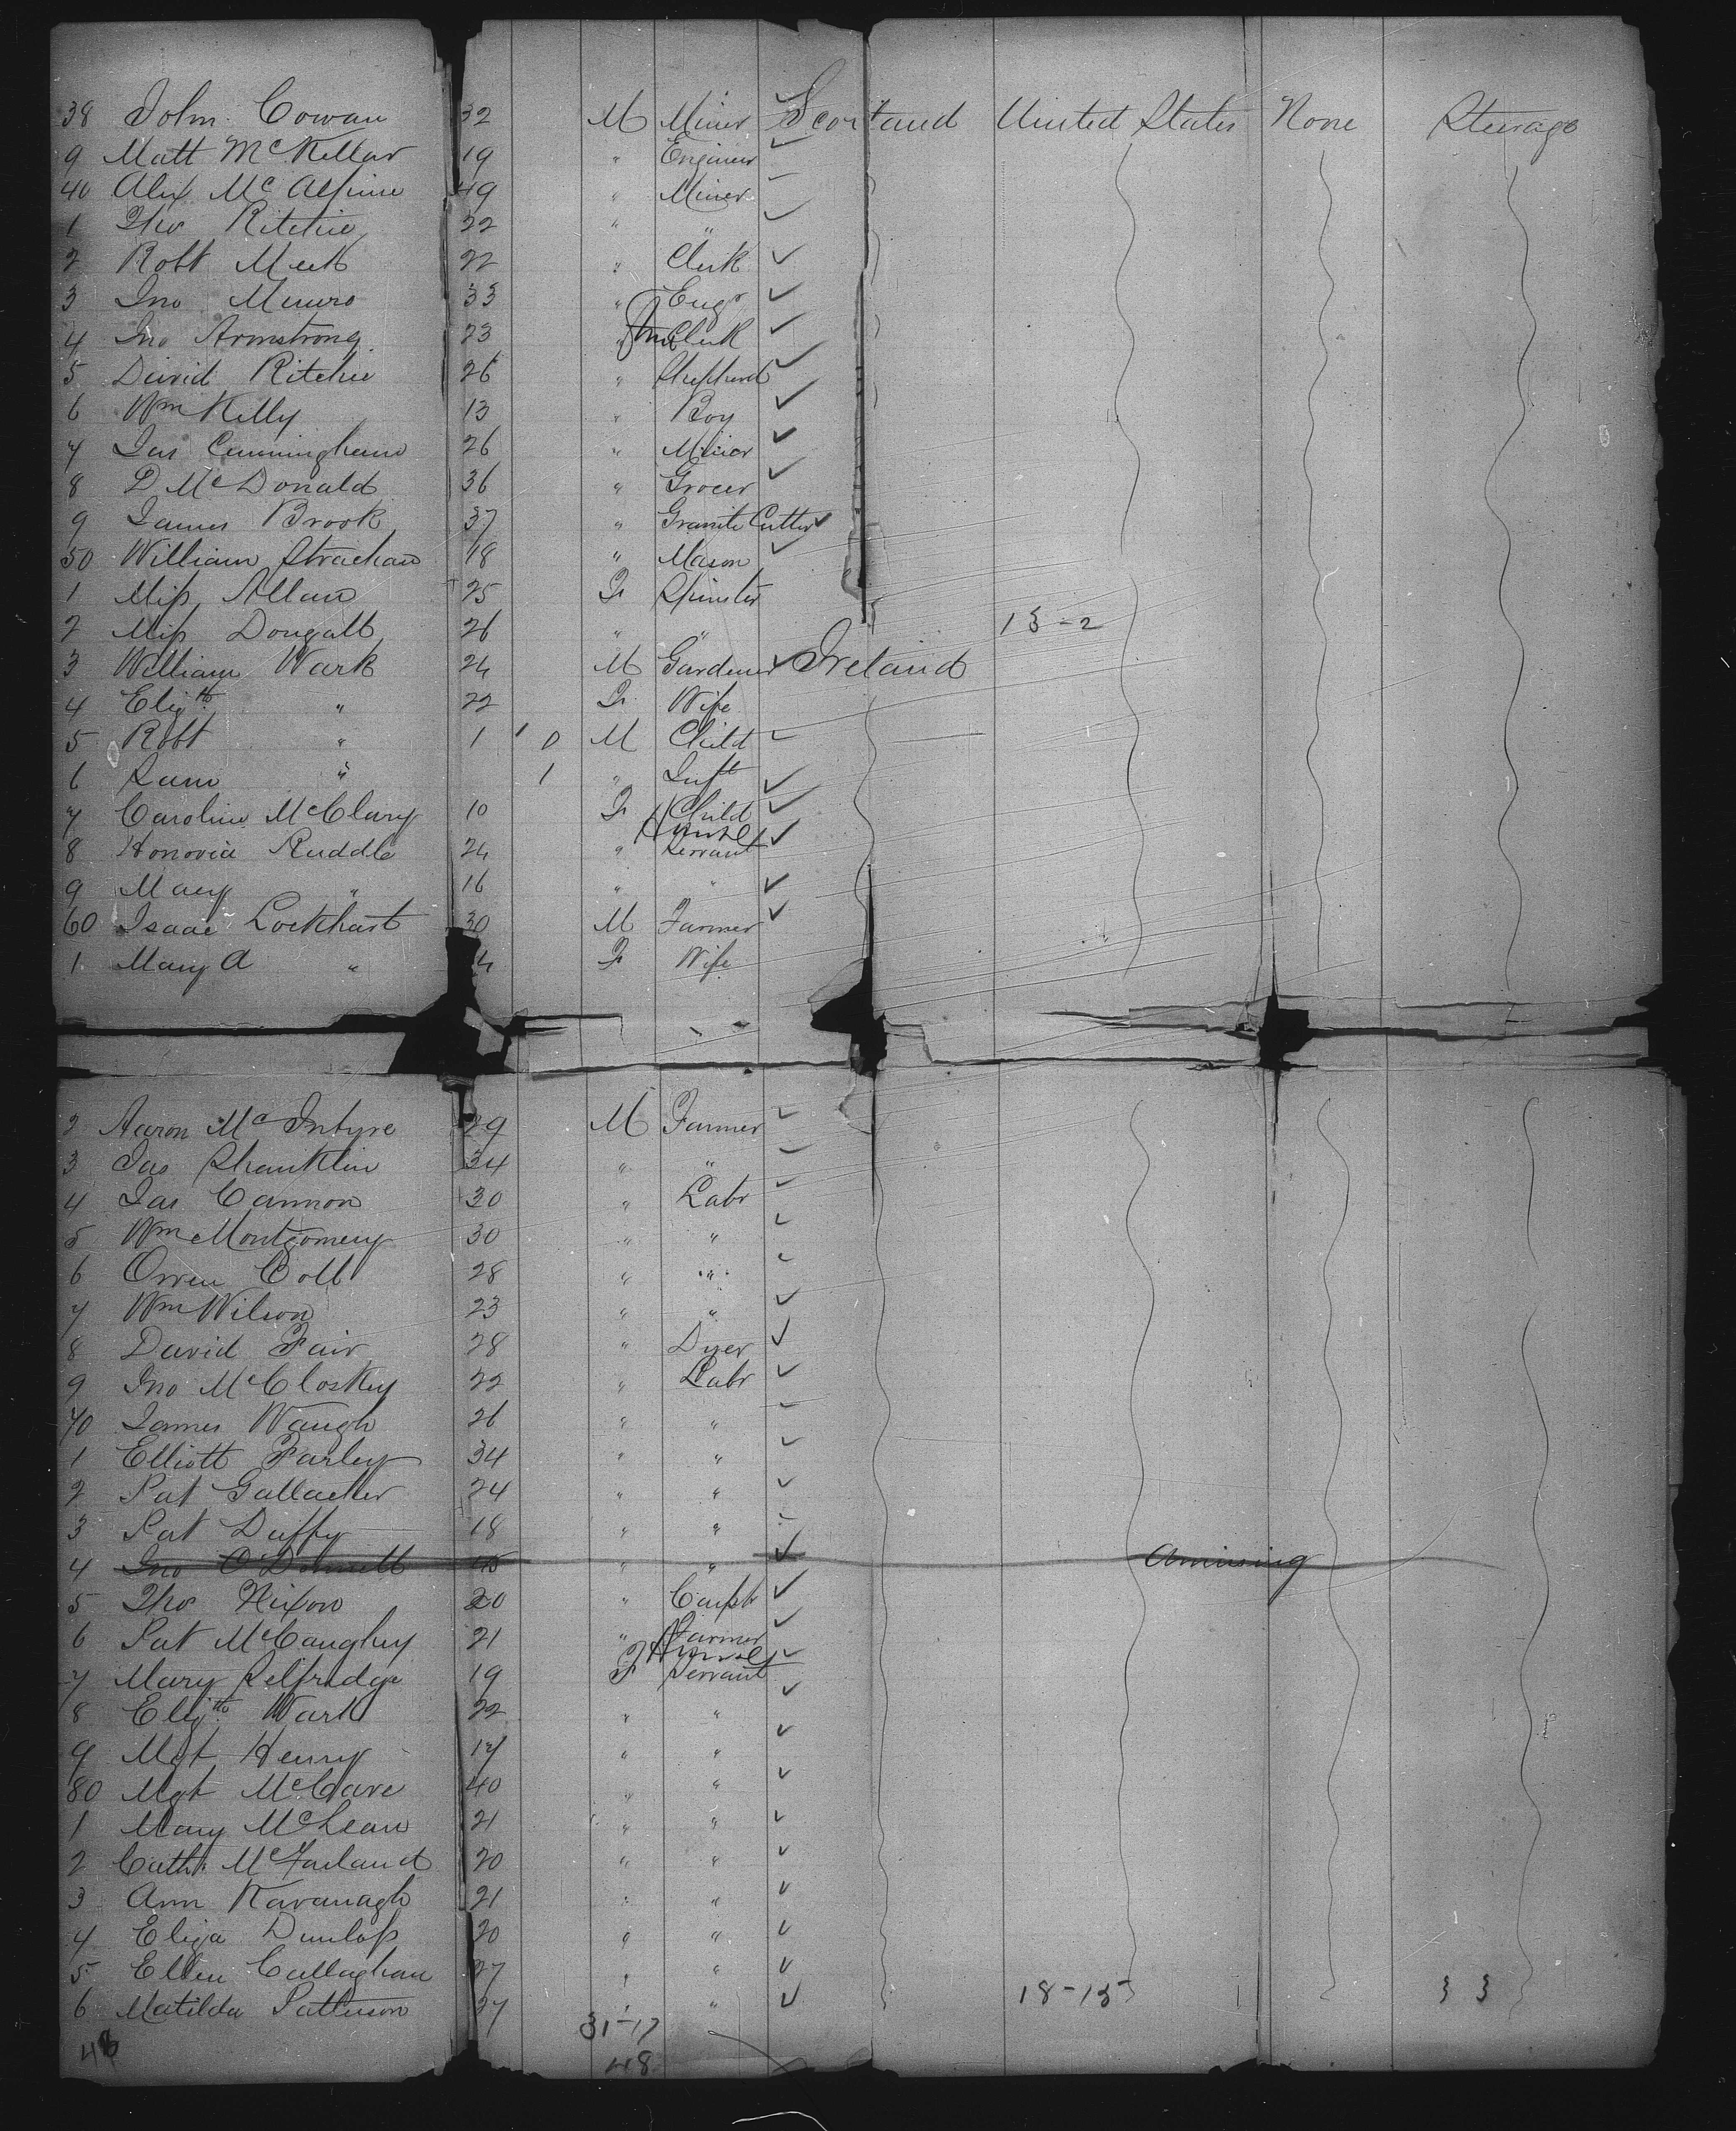 38 John Cowan 32 M Miner Scotland United States None Steerage
9 Matt McKellar 19 " Engineer
40 Alex McAlpine 49 " Miner
1 Thos Ritchie 22 " "
2 Robt Meek 22 " Clerk
3 Jno Munro 33 " Engr
4 Jno Armstrong 23 " Clerk
5 David Ritchie 26 " Shepherd
6 Wm Kelly 13 " Boy
7 Jas Cunningham 26 " Miner
8 D McDonald 36 " Grocer
9 James Brook 37 " Granite Cutter
50 William Strachan 18 " Mason
1 Miss Allan 25 F Spinster
2 Miss Dougall 26 " " 13-2
3 William Wark 24 M Gardener Ireland
4 Elizth " 22 F Wife
5 Robt " 1 0 M Child
6 Sam " 1 " Inft
7 Caroline McClary 10 F Child
8 Honoria Ruddle 24 " Servant
9 Mary " 16 " "
60 Isaac Lockhart 30 M Farmer
1 Mary A " 4 F Wife
2 Aaron McIntyre 29 M Farmer
3 Jas Shanklin 34 " "
4 Jas Cannon 30 " Labr
5 Wm Montgomery 30 " "
6 Owen Coll 28 " "
7 Wm Wilson 23 " "
8 David Fair 28 " Dyer
9 Jno McCloskey 22 " Labr
70 James Waugh 26 " "
1 Elliott Farley 34 " "
2 Pat Gallacher 24 " "
3 Pat Duffy 18 " "
4 Jno O'Donnell 45 " "
5 Thos Nixon 20 " Carptr
6 Pat McCaughey 21 " Farmer
7 Mary Selfridge 19 F Servant
8 Elizth Wark 22 " "
9 Mgt Henry 17 " "
80 Mgt McCave 40 " "
1 Mary McLean 21 " "
2 Cath McFarland 20 " "
3 Ann Kavanagh 21 " "
4 Eliza Dunlop 20 " "
5 Ellen Callaghan 27 " "
6 Matilda Patterson 37 " " 18-15
31-17
48 48